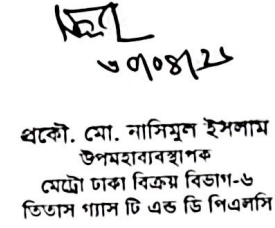 ৩০/০৪/২৬
প্রকৌ. মো. নাসিমুল ইসলাম
উপমহাব্যবস্থাপক
মেট্রো ঢাকা বিক্রয় বিভাগ-৬
তিতাস গ্যাস টি এন্ড ডি পিএলসি